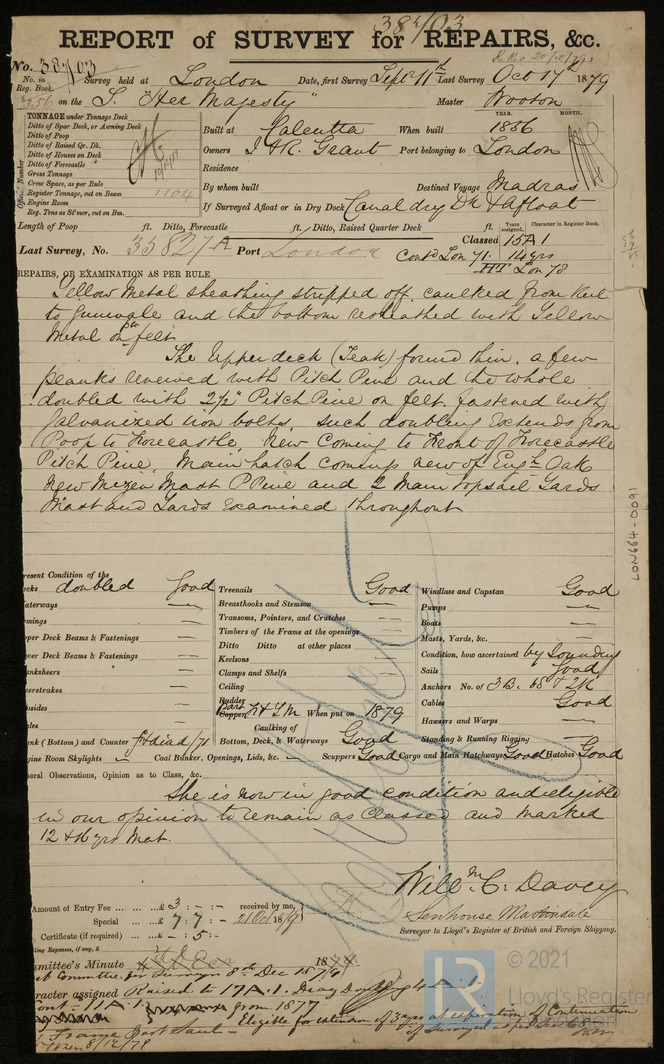 38703
REPORT of SURVEY for REPAIRS, &c.
No. 38703 Survey held at London Date, first Survey Sept 11th Last Survey Oct 17th 1879
No. in Reg. Book.
356 on the S. "Her Majesty" Master Wooton
TONNAGE under Tonnage Deck
Ditto of Spar Deck, or Awning Deck
Ditto of Poop
Ditto of Raised Qr. Dk.
Ditto of Houses on Deck
Ditto of Forecastle
Gross Tonnage
Crew Space, as per Rule
Register Tonnage, cut on Beam 1104
Engine Room
Reg. Tons as St'mer, cut on Bm.
Official Number
YEAR. MONTH.
Built at Calcutta When built 1856
Owners J & R. Grant Port belonging to London
Residence
By whom built Destined Voyage Madras
If Surveyed Afloat or in Dry Dock Canal dry Dk & Afloat
Length of Poop ft. Ditto, Forecastle ft. Ditto, Raised Quarter Deck ft.
Years assigned. Character in Register Book.
Last Survey, No. 35827A Port London Classed 15A1
Contd Lon 71. 14yrs
HT Lon 78
REPAIRS, OR EXAMINATION AS PER RULE
Yellow Metal sheathing stripped off, caulked from Keel
to Gunwale and the bottom resheathed with Yellow
Metal on felt
The Upper deck (Teak) found thin, a few
planks renewed with Pitch Pine and the whole
doubled with 2½" Pitch Pine on felt fastened with
Galvanized iron bolts, such doubling extends from
Poop to Forecastle, New Coming to Front of Forecastle
Pitch Pine, Main hatch comings new of Engh Oak
New Mizen Mast P Pine and 2 Main Topsail Yards
Mast and Yards Examined throughout
LON664-0091
resent Condition of the
cks doubled Good
aterways —
mings —
pper Deck Beams & Fastenings —
wer Deck Beams & Fastenings —
anksheers —
eerstrakes —
psides —
ales —
nk (Bottom) and Counter
gine Room Skylights —
Treenails Good
Breasthooks and Stemson —
Transoms, Pointers, and Crutches —
Timbers of the Frame at the openings —
Ditto Ditto at other places —
Keelsons —
Clamps and Shelfs —
Ceiling —
Rudder —
Copper F & YM When put on 1879
Caulking of Bottom, Deck, & Waterways Good
Coal Bunker, Openings, Lids, &c. — Scuppers Good Cargo and Main Hatchways Good Hatches Good
Windlass and Capstan Good
Pumps —
Boats —
Masts, Yards, &c. —
Condition, how ascertained by Sounding
Sails Good
Anchors No. of 3B. &S & 2K
Cables Good
Hawsers and Warps —
Standing & Running Rigging —
eral Observations, Opinion as to Class, &c.
She is now in good condition and eligible
in our opinion to remain as Classed and marked
12 & 16 yrs Mat.
Willm C: Davey
Senhouse Martindale
Surveyor to Lloyd's Register of British and Foreign Shipping.
Amount of Entry Fee £ 3 : - : - received by me,
Special £ 7 : 7 : - 21 Oct 1879
Certificate (if required) £ - : 5 : -
ling Expenses, if any, £
mmittee's Minute 18
8th Dec 1879
racter assigned Raised to 17A.1.
from 1877
Eligible for extension of 3 years at expiration of Continuation
8/12/79
LR
© 2021
Lloyd's Register
Foundation